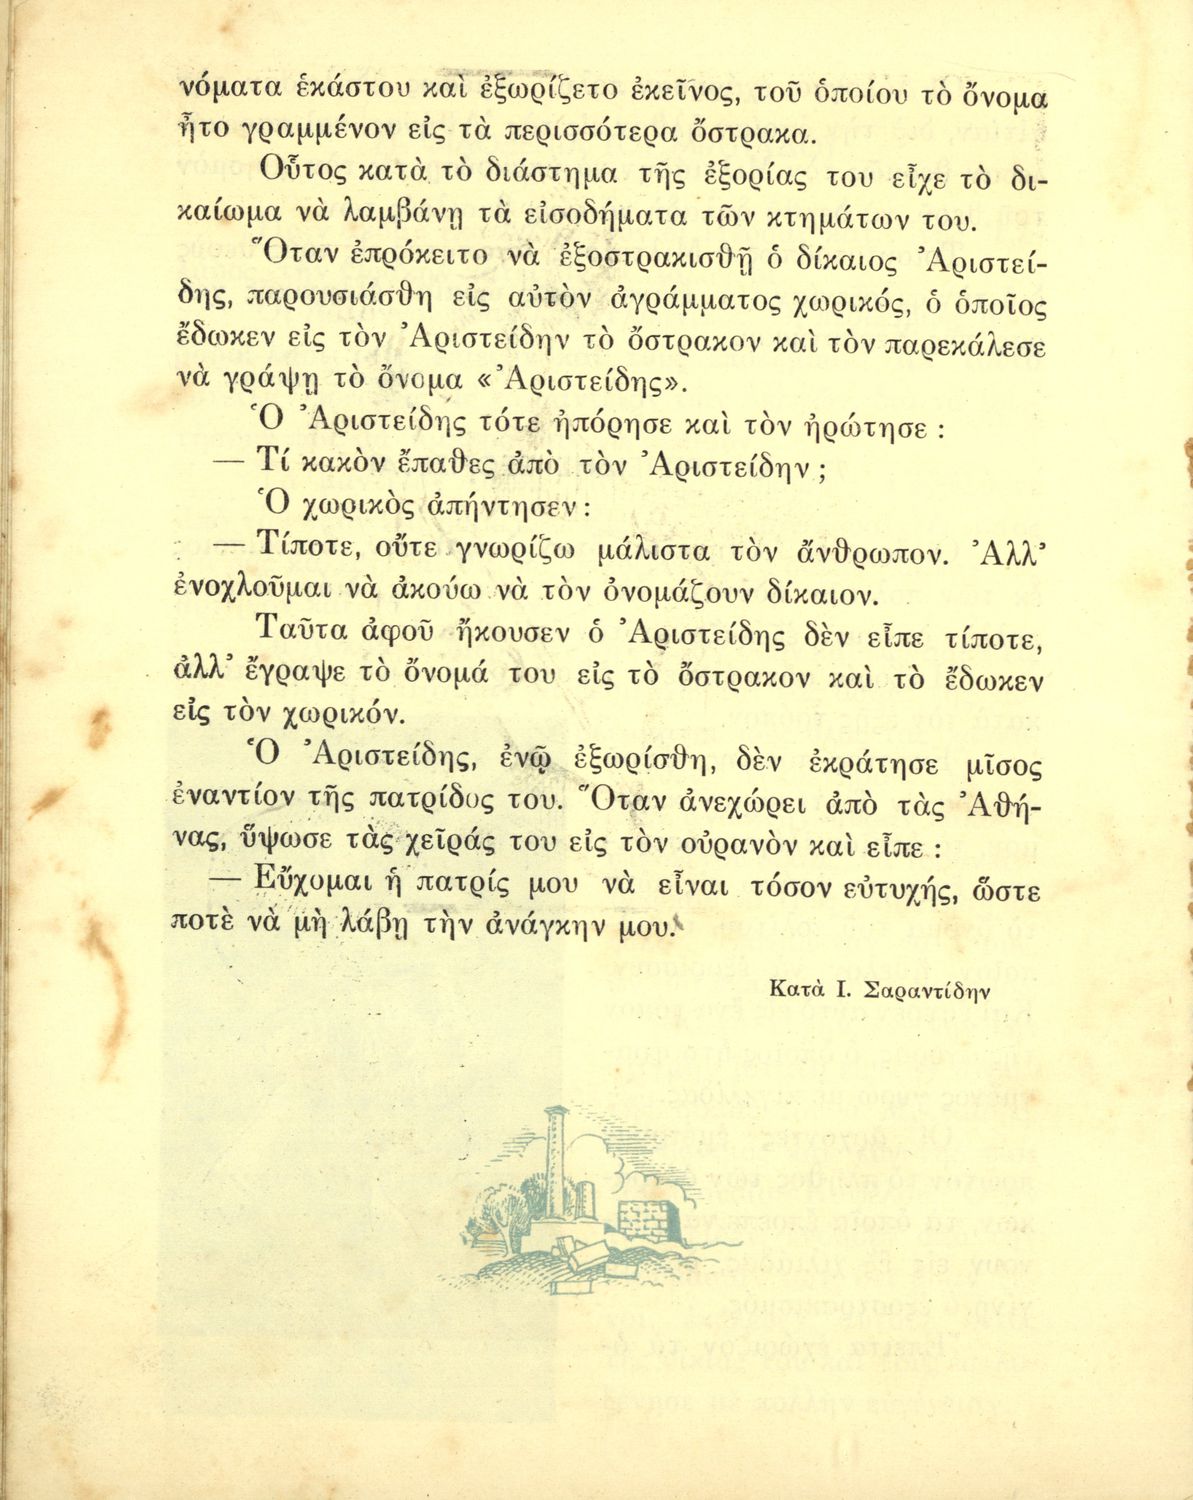 νόματα ἑκάστου καὶ ἐξωρίζετο ἐκεῖνος, τοῦ ὁποίου τὸ ὄνομα
ἦτο γραμμένον εἰς τὰ περισσότερα ὄστρακα.
Οὗτος κατὰ τὸ διάστημα τῆς ἐξορίας του εἶχε τὸ δι-
καίωμα νὰ λαμβάνῃ τὰ εἰσοδήματα τῶν κτημάτων του.
Ὅταν ἐπρόκειτο νὰ ἐξοστρακισθῇ ὁ δίκαιος Ἀριστεί-
δης, παρουσιάσθη εἰς αὐτὸν ἀγράμματος χωρικός, ὁ ὁποῖος
ἔδωκεν εἰς τὸν Ἀριστείδην τὸ ὄστρακον καὶ τὸν παρεκάλεσε
νὰ γράψῃ τὸ ὄνομα «Ἀριστείδης».
Ὁ Ἀριστείδης τότε ἠπόρησε καὶ τὸν ἠρώτησε :
— Τί κακὸν ἔπαθες ἀπὸ τὸν Ἀριστείδην ;
Ὁ χωρικὸς ἀπήντησεν :
— Τίποτε, οὔτε γνωρίζω μάλιστα τὸν ἄνθρωπον. Ἀλλ’
ἐνοχλοῦμαι νὰ ἀκούω νὰ τὸν ὀνομάζουν δίκαιον.
Ταῦτα ἀφοῦ ἤκουσεν ὁ Ἀριστείδης δὲν εἶπε τίποτε,
ἀλλ’ ἔγραψε τὸ ὄνομά του εἰς τὸ ὄστρακον καὶ τὸ ἔδωκεν
εἰς τὸν χωρικόν.
Ὁ Ἀριστείδης, ἐνῷ ἐξωρίσθη, δὲν ἐκράτησε μῖσος
ἐναντίον τῆς πατρίδος του. Ὅταν ἀνεχώρει ἀπὸ τὰς Ἀθή-
νας, ὕψωσε τὰς χεῖράς του εἰς τὸν οὐρανὸν καὶ εἶπε :
— Εὔχομαι ἡ πατρίς μου νὰ εἶναι τόσον εὐτυχής, ὥστε
ποτὲ νὰ μὴ λάβῃ τὴν ἀνάγκην μου.
Κατὰ Ι. Σαραντίδην